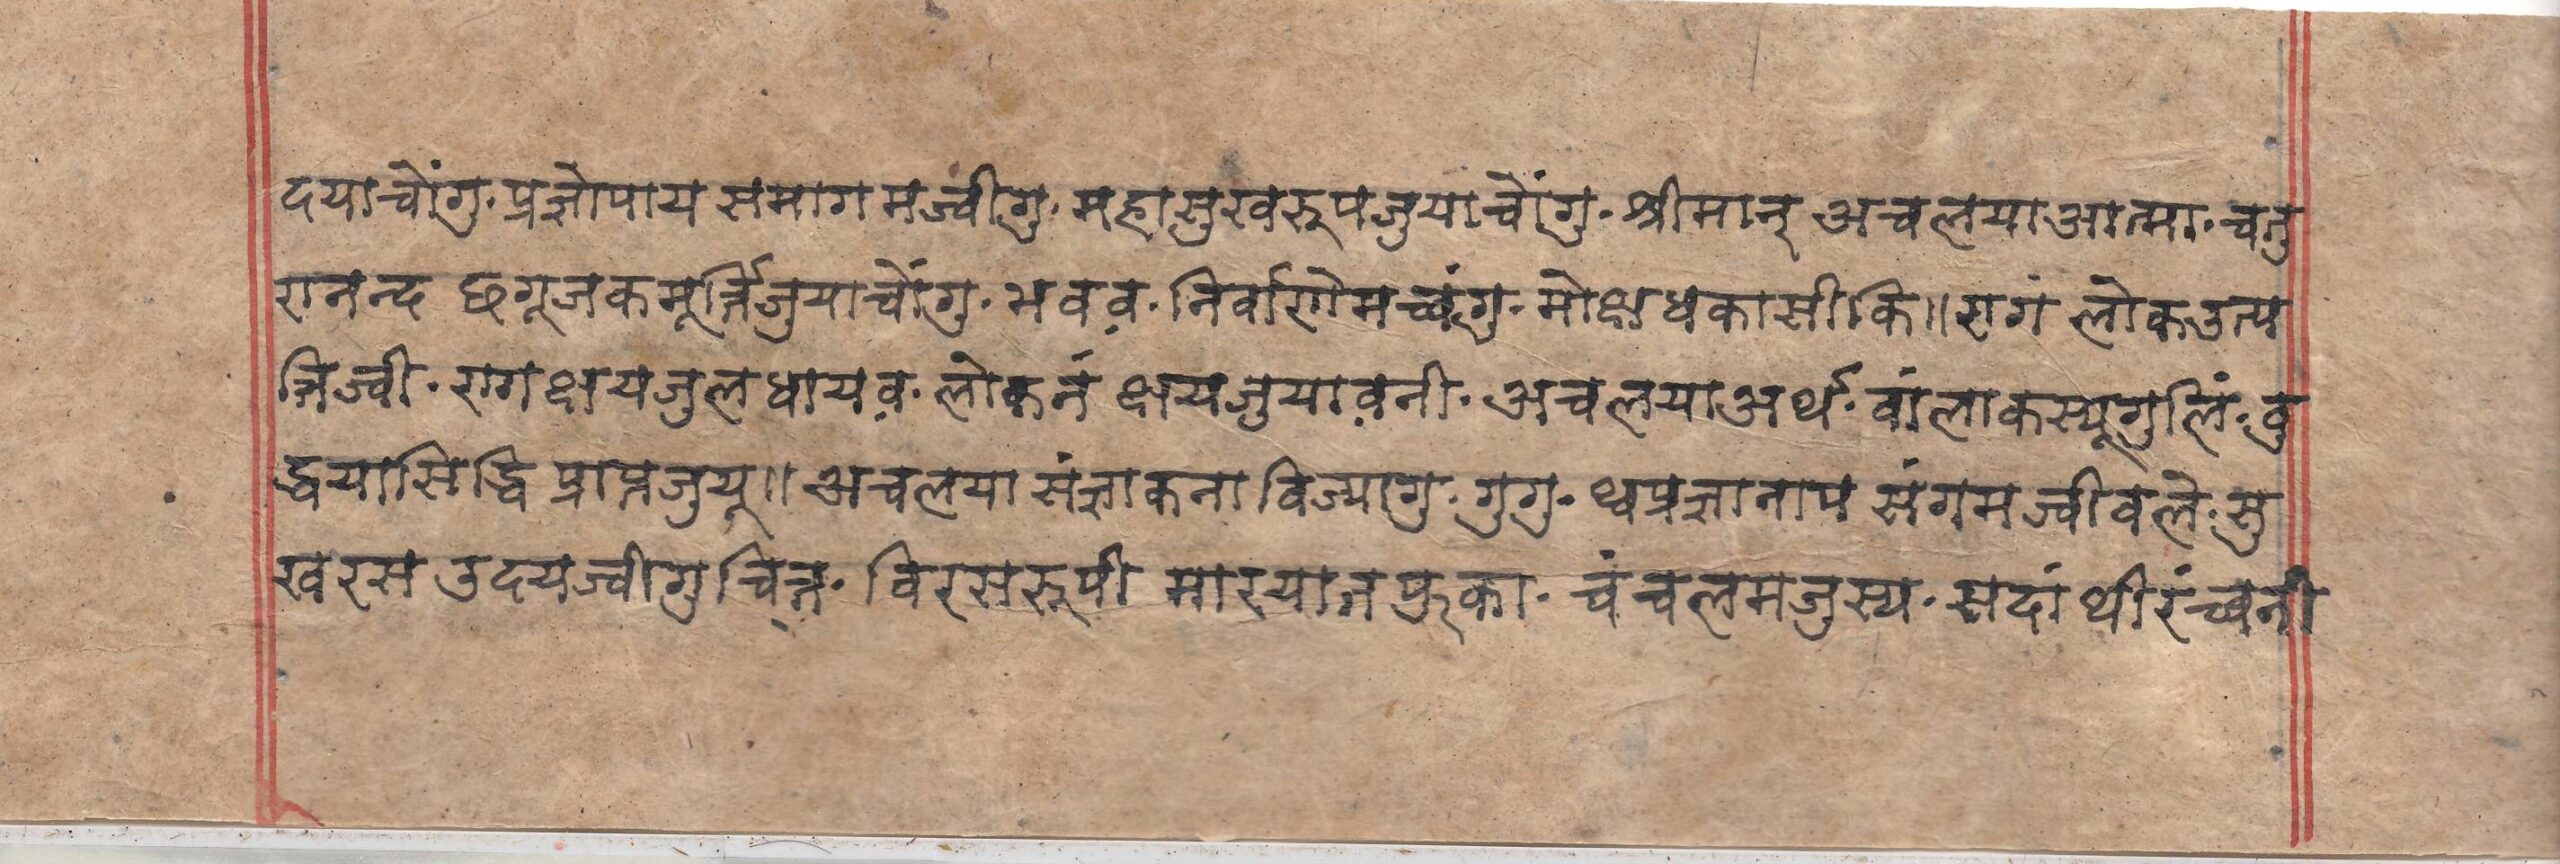 दयाचोंगु· प्रज्ञोपाय समागमज्वीगु· महासुखरूपजुयाचोंगु· श्रीमान् अचलयाआत्मा· चतु
रानन्द छगूजकमूर्त्तिजुयाचोंगु· भवव़· निर्वाणेमच्वंगु· मोक्षधकासीकि॥ रागं लोकउत्प
त्तिज्वी· रागक्षयजुलधायव़· लोकनं क्षयजुयाव़नी· अचलयाअर्थ· वांलाकस्यूगुलिं· वु
द्धयासिद्धि प्राप्तजुयू॥ अचलया संज्ञाकनाविज्यागु· गुगु· थ्वप्रज्ञानाप संगमज्वीवले· सु
खरस उदयज्वीगुचित्त· विरसरूपी मारयात फुका· चंचलमजुस्य· सदां थीरंच्वनी